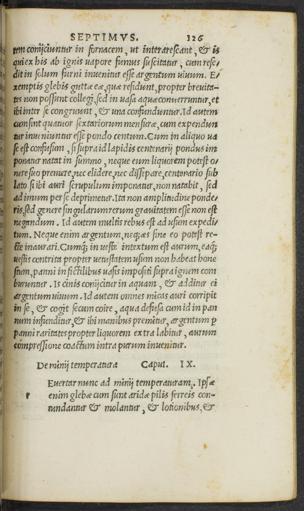 SEPTIMVS. 126
tem conijciuntur in fornacem, ut interarescant, & is
qui ex his ab ignis uapore fumus suscitatur, cum rese-
dit in solum furni inuenitur esse argentum uiuum. E-
xemptis glebis guttæ eæ, quæ residunt, propter breuita-
tes non possunt collegi, sed in uasa aquæ conuerruntur, et
ibi inter se congruunt, & una confunduntur. Id autem
cum sint quatuor sextariorum mensuræ, cum expendun
tur inueniuntur esse pondo centum. Cum in aliquo ua
se est confusum, si supra id lapidis centenarij pondus im
ponatur natat in summo, neque eum liquorem potest o-
nere suo premere, nec elidere, nec dissipare, centenario sub
lato si ibi auri scrupulum imponatur, non natabit, sed
ad imum per se deprimetur. Ita non amplitudine ponde-
ris, sed genere singularum rerum grauitatem esse non est
negandum. Id autem multis rebus est ad usum expedi-
tum. Neque enim argentum, neq; æs sine eo potest re-
cte inaurari. Cumq; in ueste intextum est aurum, eaq;
uestis contrita propter uetustatem usum non habeat hone
stum, panni in fictilibus uasis impositi supra ignem com
buruntur. Is cinis conijcitur in aquam, & additur ei
argentum uiuum. Id autem omnes micas auri corripit
in se, & cogit secum coire, aqua defusa cum id in pan
num infunditur, & ibi manibus premitur, argentum p
panni raritates propter liquorem extra labitur, aurum
compressione coactum intra purum inuenitur.
De minij temperatura Caput. IX.
Euertar nunc ad minij temperaturam. Ipsæ
r enim glebæ cum sunt aridæ pilis ferreis con-
tundantur & molantur, & lotionibus, &